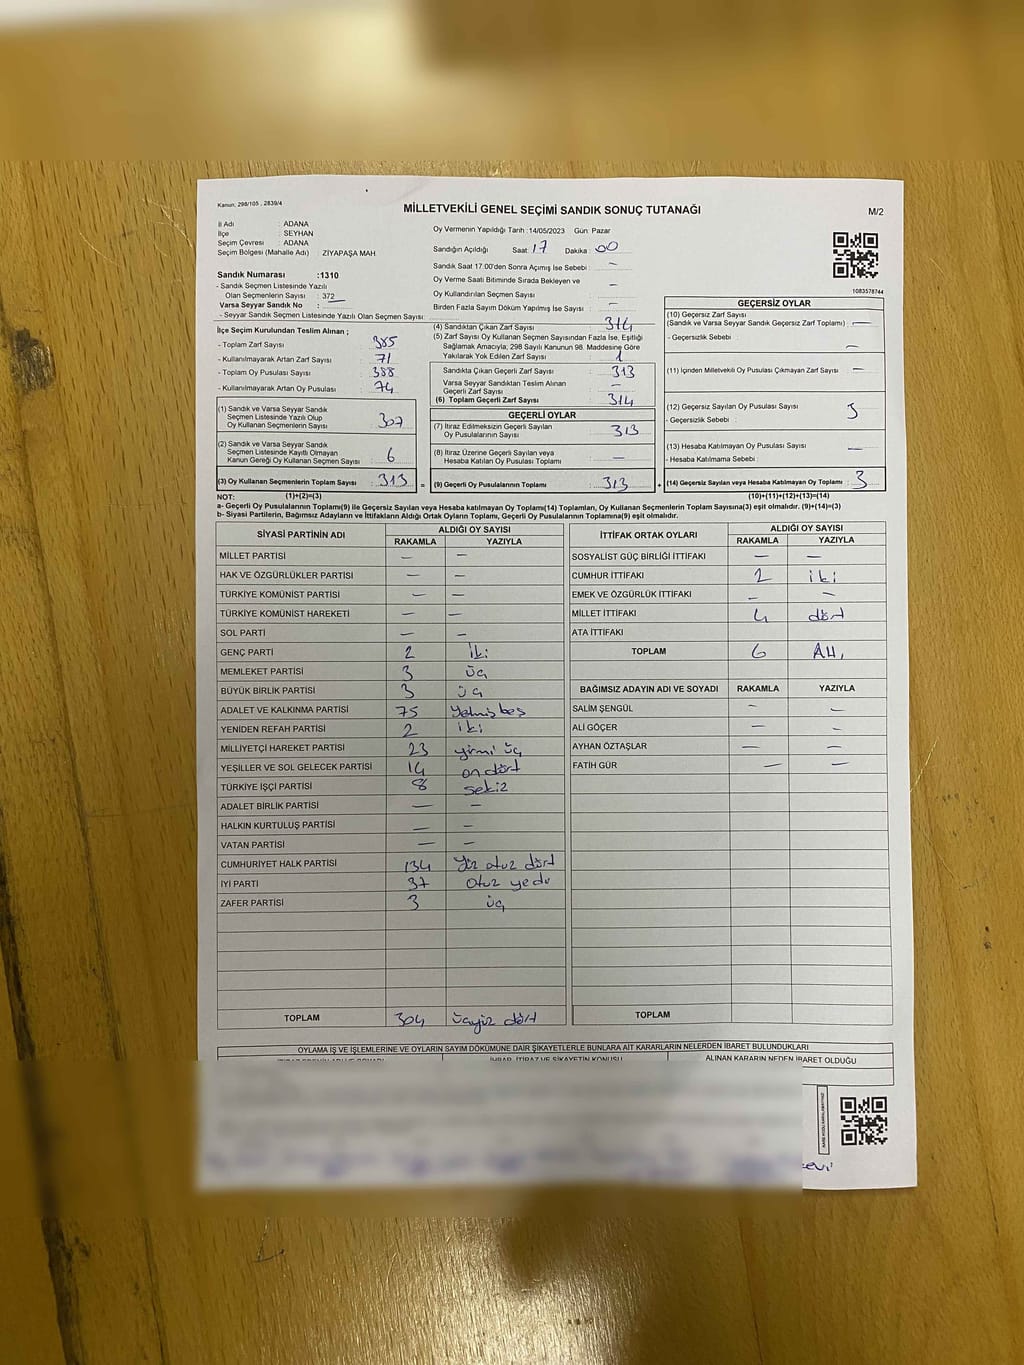 Kanun; 298/105 , 2839/4
MİLLETVEKİLİ GENEL SEÇİMİ SANDIK SONUÇ TUTANAĞI
M/2
İl Adı : ADANA
İlçe : SEYHAN
Seçim Çevresi : ADANA
Seçim Bölgesi (Mahalle Adı) : ZİYAPAŞA MAH
Sandık Numarası :1310
- Sandık Seçmen Listesinde Yazılı
Olan Seçmenlerin Sayısı : 372
Varsa Seyyar Sandık No :
- Seyyar Sandık Seçmen Listesinde Yazılı Olan Seçmen Sayısı:
Oy Vermenin Yapıldığı Tarih :14/05/2023 Gün Pazar
Sandığın Açıldığı Saat: 17 Dakika: 00
Sandık Saat 17:00'den Sonra Açılmış İse Sebebi : —
Oy Verme Saati Bitiminde Sırada Bekleyen ve
Oy Kullandırılan Seçmen Sayısı : —
Birden Fazla Sayım Döküm Yapılmış İse Sayısı : —
1083578744
İlçe Seçim Kurulundan Teslim Alınan ;
- Toplam Zarf Sayısı : 385
- Kullanılmayarak Artan Zarf Sayısı : 71
- Toplam Oy Pusulası Sayısı : 388
- Kullanılmayarak Artan Oy Pusulası : 74
(1) Sandık ve Varsa Seyyar Sandık
Seçmen Listesinde Yazılı Olup
Oy Kullanan Seçmenlerin Sayısı : 307
(2) Sandık ve Varsa Seyyar Sandık
Seçmen Listesinde Kayıtlı Olmayan
Kanun Gereği Oy Kullanan Seçmen Sayısı : 6
(3) Oy Kullanan Seçmenlerin Toplam Sayısı : 313 =
(4) Sandıktan Çıkan Zarf Sayısı : 314
(5) Zarf Sayısı Oy Kullanan Seçmen Sayısından Fazla İse, Eşitliği
Sağlamak Amacıyla, 298 Sayılı Kanunun 98. Maddesine Göre
Yakılarak Yok Edilen Zarf Sayısı : 1
Sandıkta Çıkan Geçerli Zarf Sayısı : 313
Varsa Seyyar Sandıktan Teslim Alınan
Geçerli Zarf Sayısı : —
(6) Toplam Geçerli Zarf Sayısı : 314
GEÇERLİ OYLAR
(7) İtiraz Edilmeksizin Geçerli Sayılan
Oy Pusulalarının Sayısı : 313
(8) İtiraz Üzerine Geçerli Sayılan veya
Hesaba Katılan Oy Pusulası Toplamı : —
(9) Geçerli Oy Pusulalarının Toplamı : 313 +
GEÇERSİZ OYLAR
(10) Geçersiz Zarf Sayısı
(Sandık ve Varsa Seyyar Sandık Geçersiz Zarf Toplamı) : —
- Geçersizlik Sebebi : —
(11) İçinden Milletvekili Oy Pusulası Çıkmayan Zarf Sayısı : —
(12) Geçersiz Sayılan Oy Pusulası Sayısı : 3
- Geçersizlik Sebebi :
(13) Hesaba Katılmayan Oy Pusulası Sayısı : —
- Hesaba Katılmama Sebebi :
(14) Geçersiz Sayılan veya Hesaba Katılmayan Oy Toplamı : 3
NOT: (1)+(2)=(3) (10)+(11)+(12)+(13)=(14)
a- Geçerli Oy Pusulalarının Toplamı(9) ile Geçersiz Sayılan veya Hesaba katılmayan Oy Toplamı(14) Toplamları, Oy Kullanan Seçmenlerin Toplam Sayısına(3) eşit olmalıdır. (9)+(14)=(3)
b- Siyasi Partilerin, Bağımsız Adayların ve İttifakların Aldığı Ortak Oyların Toplamı, Geçerli Oy Pusulalarının Toplamına(9) eşit olmalıdır.
SİYASİ PARTİNİN ADI ALDIĞI OY SAYISI
RAKAMLA YAZIYLA
MİLLET PARTİSİ — —
HAK VE ÖZGÜRLÜKLER PARTİSİ — —
TÜRKİYE KOMÜNİST PARTİSİ — —
TÜRKİYE KOMÜNİST HAREKETİ — —
SOL PARTİ — —
GENÇ PARTİ 2 iki
MEMLEKET PARTİSİ 3 üç
BÜYÜK BİRLİK PARTİSİ 3 üç
ADALET VE KALKINMA PARTİSİ 75 Yetmiş beş
YENİDEN REFAH PARTİSİ 2 iki
MİLLİYETÇİ HAREKET PARTİSİ 23 yirmi üç
YEŞİLLER VE SOL GELECEK PARTİSİ 14 on dört
TÜRKİYE İŞÇİ PARTİSİ 8 sekiz
ADALET BİRLİK PARTİSİ — —
HALKIN KURTULUŞ PARTİSİ — —
VATAN PARTİSİ — —
CUMHURİYET HALK PARTİSİ 134 Yüz otuz dört
İYİ PARTİ 37 otuz yedi
ZAFER PARTİSİ 3 üç
TOPLAM 304 üçyüz dört
İTTİFAK ORTAK OYLARI ALDIĞI OY SAYISI
RAKAMLA YAZIYLA
SOSYALİST GÜÇ BİRLİĞİ İTTİFAKI — —
CUMHUR İTTİFAKI 2 iki
EMEK VE ÖZGÜRLÜK İTTİFAKI — —
MİLLET İTTİFAKI 4 dört
ATA İTTİFAKI
TOPLAM 6 Altı
BAĞIMSIZ ADAYIN ADI VE SOYADI RAKAMLA YAZIYLA
SALİM ŞENGÜL — —
ALİ GÖÇER — —
AYHAN ÖZTAŞLAR — —
FATİH GÜR — —
TOPLAM
OYLAMA İŞ VE İŞLEMLERİNE VE OYLARIN SAYIM DÖKÜMÜNE DAİR ŞİKAYETLERLE BUNLARA AİT KARARLARIN NELERDEN İBARET BULUNDUKLARI
İHBAR, İTİRAZ VE ŞİKAYETİN KONUSU ALINAN KARARIN NEDEN İBARET OLDUĞU